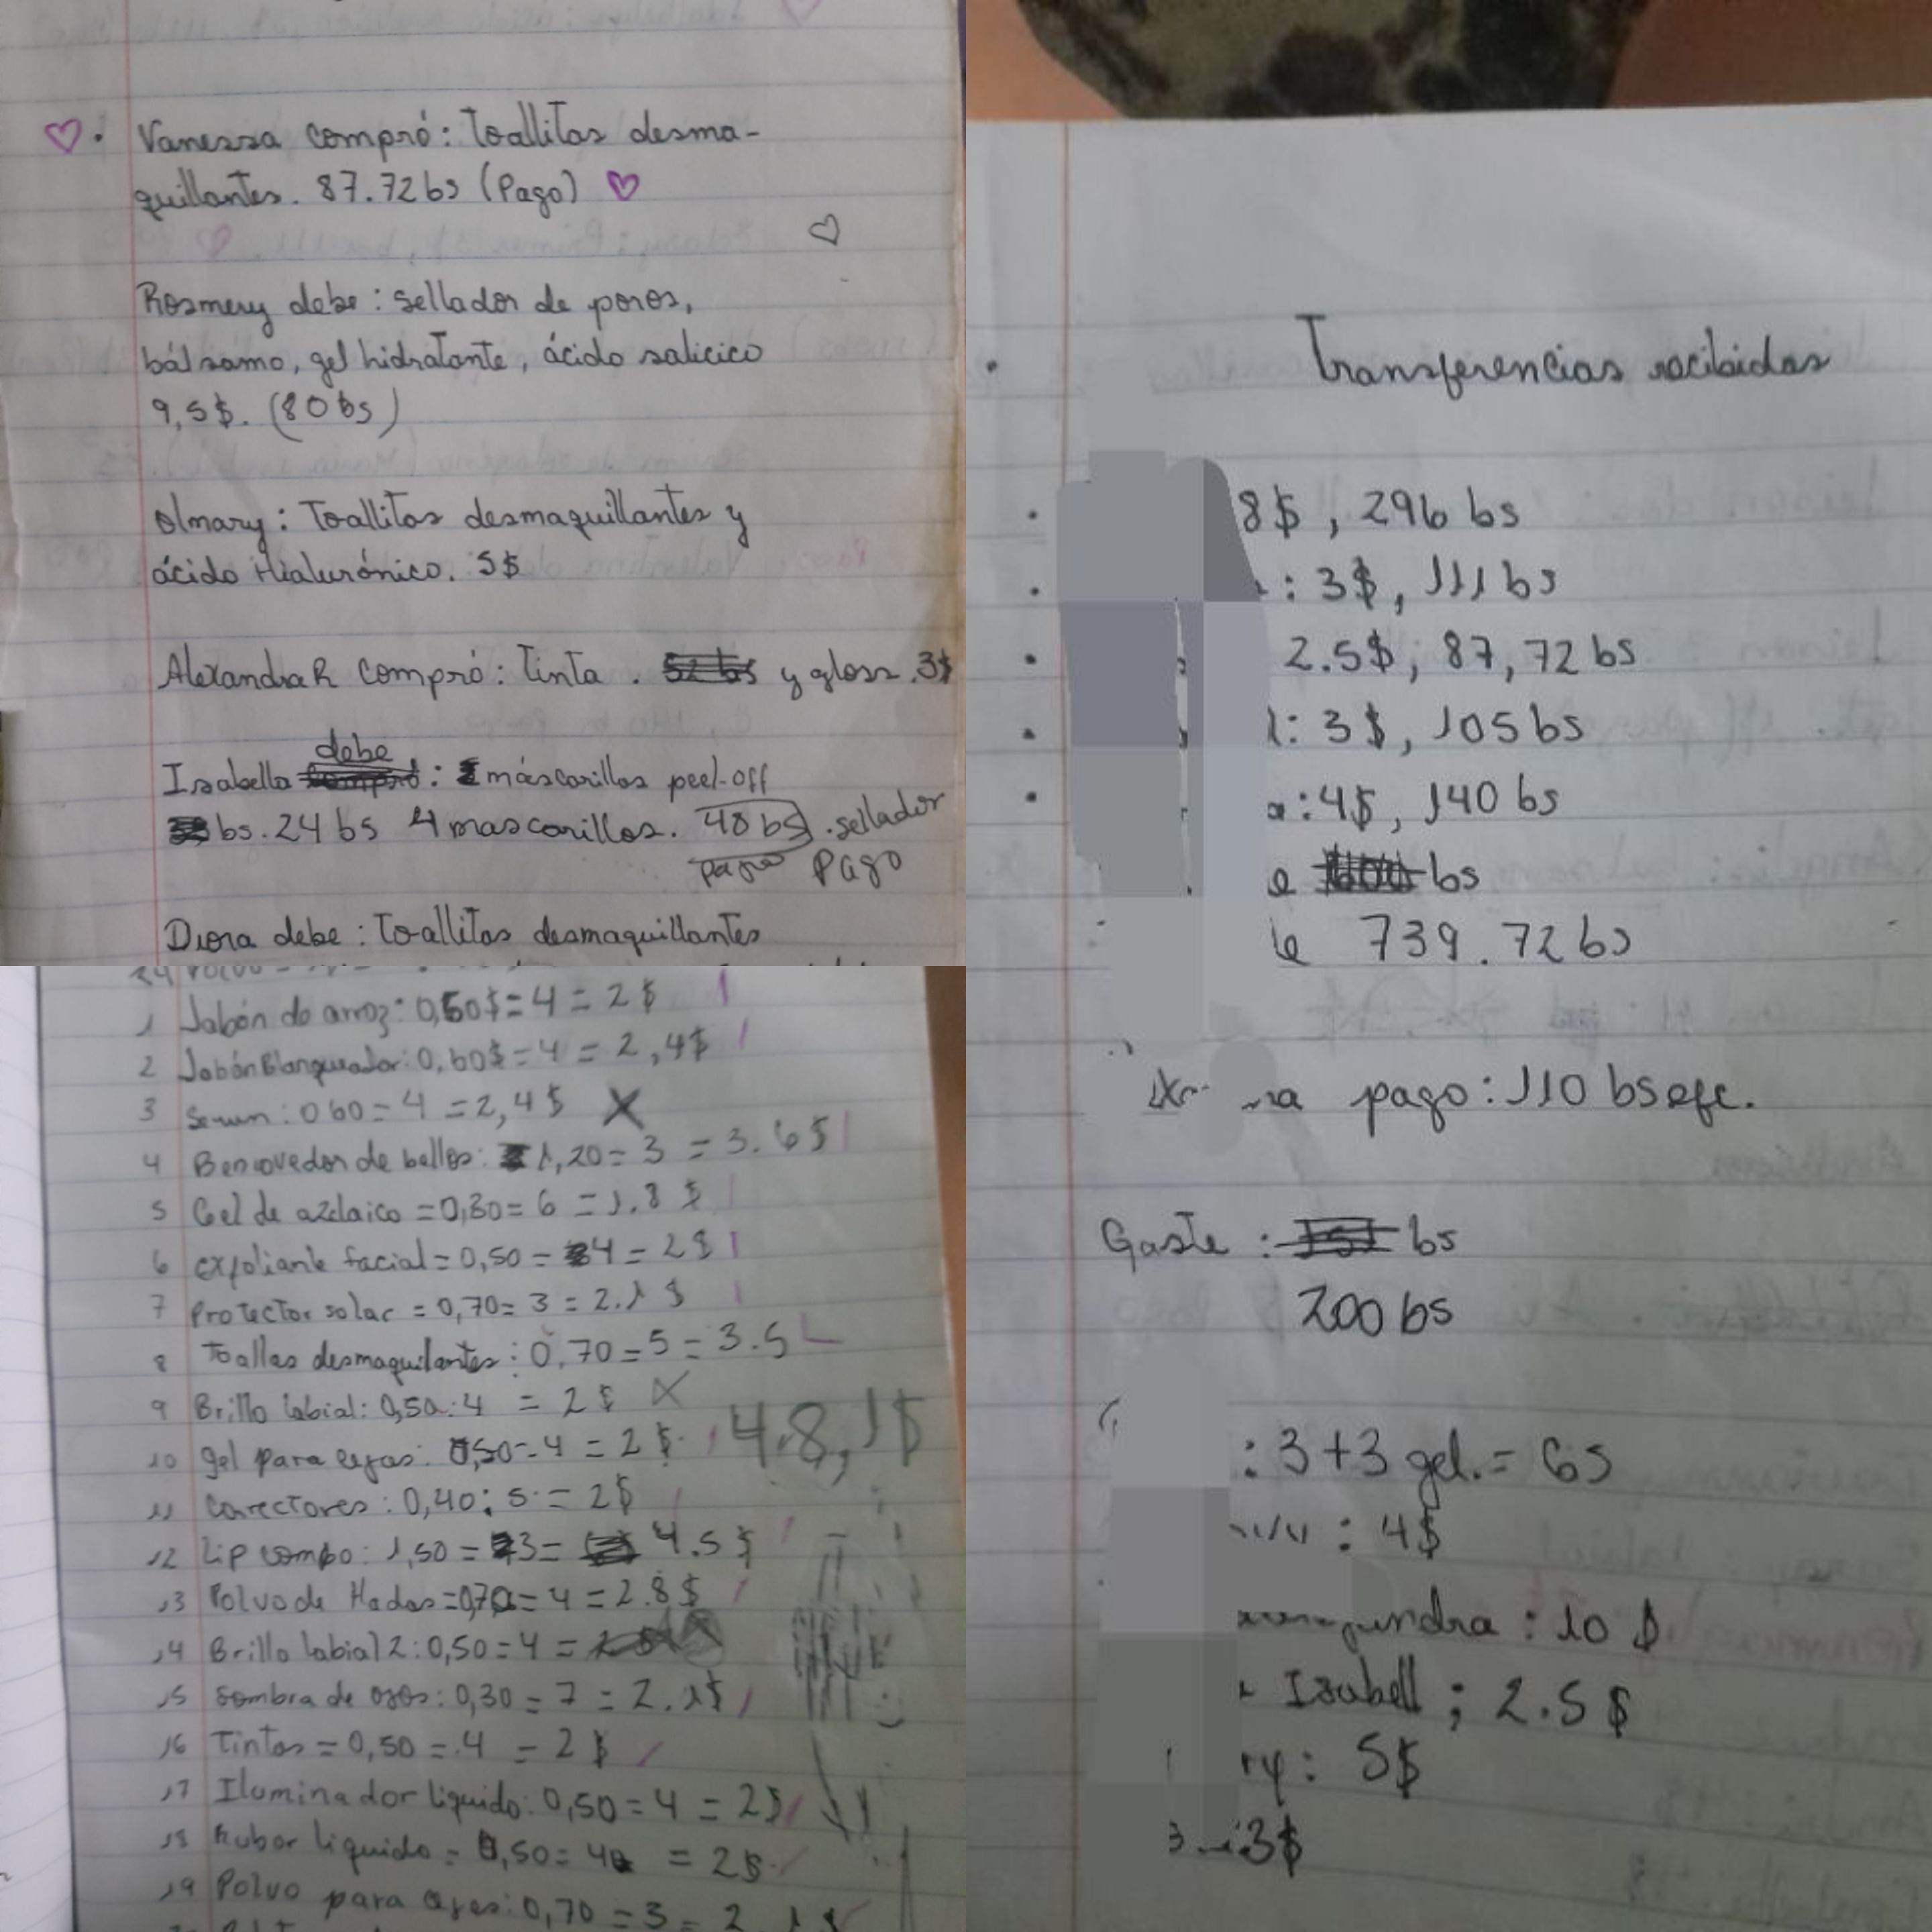 Vanessa compró: Toallitas desma-
quillantes. 87.72 bs (Pago)
Rosmery debe: sellador de poros,
bálsamo, gel hidratante, ácido salicico
9,5$. (80 bs)
Olmary: Toallitas desmaquillantes y
ácido Hialurónico. 5$
Alexandra R compró: Tinta. y gloss. 3$
debe
Isabella : máscarillas peel-off
bs. 24 bs 4 mascarillas. 48 bs. sellador
pago Pago
Diora debe: Toallitas desmaquillantes
Transferencias recibidas
8$, 296 bs
: 3$, 111 bs
2.5$, 87,72 bs
: 3$, 105 bs
a: 4$, 140 bs
e bs
le 739.72 bs
na pago: 110 bs efc.
Gaste: bs
200 bs
: 3+3 gel. = 6$
: 4$
: 10 $
Isabell; 2.5 $
ry: 5$
3$
1 Jabón de arroz: 0,50$ = 4 = 2 $
2 Jabón Blanqueador: 0,60$ = 4 = 2,4$
3 Serum: 0 60 = 4 = 2,4$ X
4 Removedor de bellos: 1,20 = 3 = 3.6$
5 Gel de azelaico = 0,30 = 6 = 1.8 $
6 exfoliante facial = 0,50 = 4 = 2$
7 Protector solar = 0,70 = 3 = 2.1 $
8 Toallas desmaquilantes: 0,70 = 5 = 3.5
9 Brillo labial: 0,50: 4 = 2 $ X
10 gel para cejas: 0,50 = 4 = 2 $.
48,1$
11 Correctores: 0,40: 5 = 2$
12 Lip combo: 1,50 = 3 = 4.5 $
13 Polvo de Hadas = 0,70 = 4 = 2.8 $
14 Brillo labial 2: 0,50 = 4 =
15 Sombra de ojos: 0,30 = 7 = 2.1$
16 Tintas = 0,50 = 4 = 2 $
17 Iluminador liquido: 0,50 = 4 = 2$
18 Rubor liquido = 0,50 = 4 = 2$
19 Polvo para 0,70 = 3 = 2.1 $